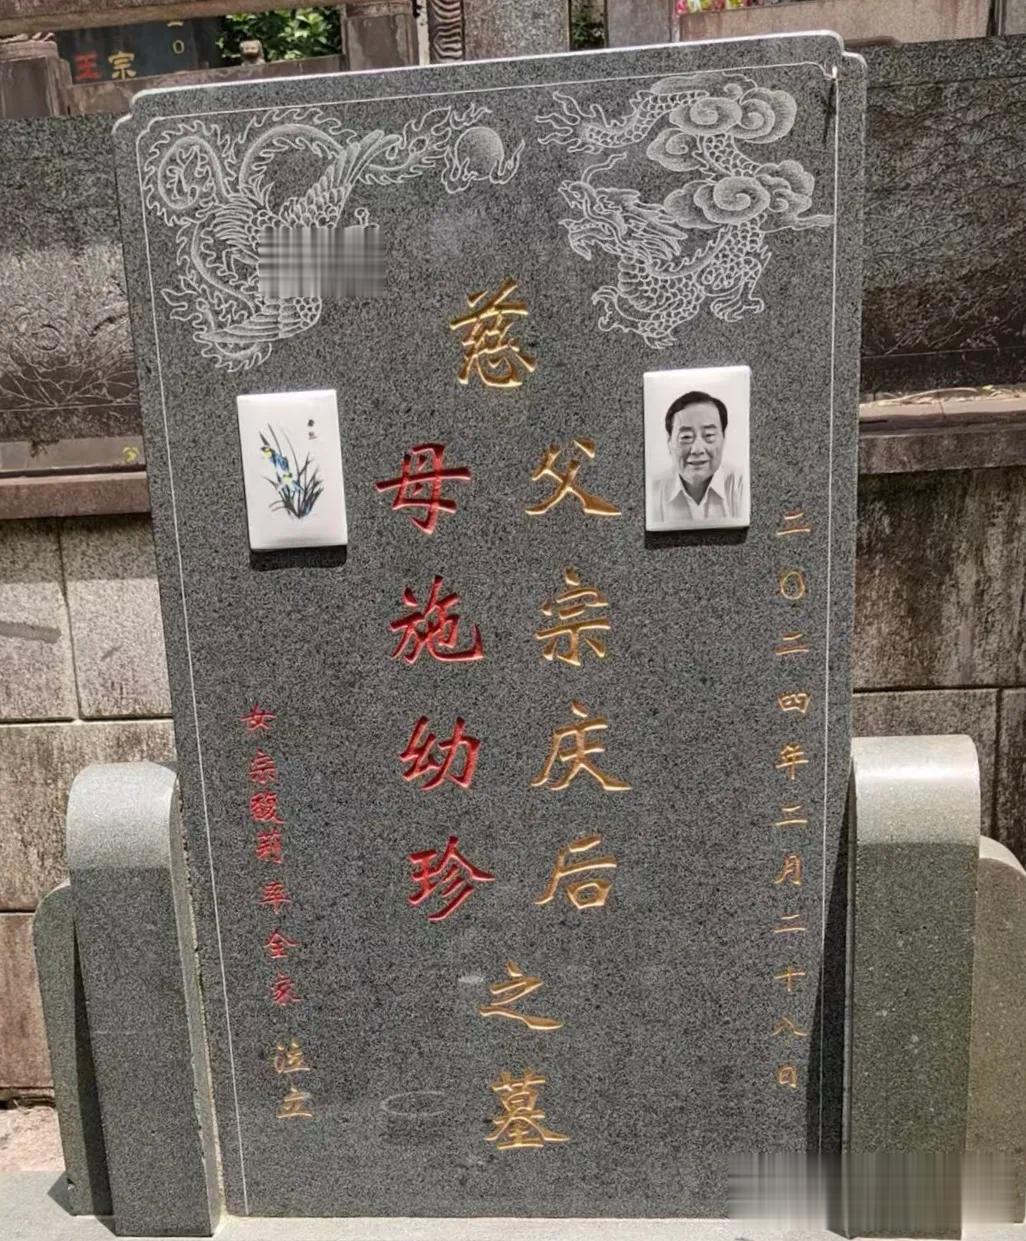 二〇二四年二月二十八日
慈
父宗庆后
母施幼珍
之墓
女宗馥莉率全家泣立
宗王